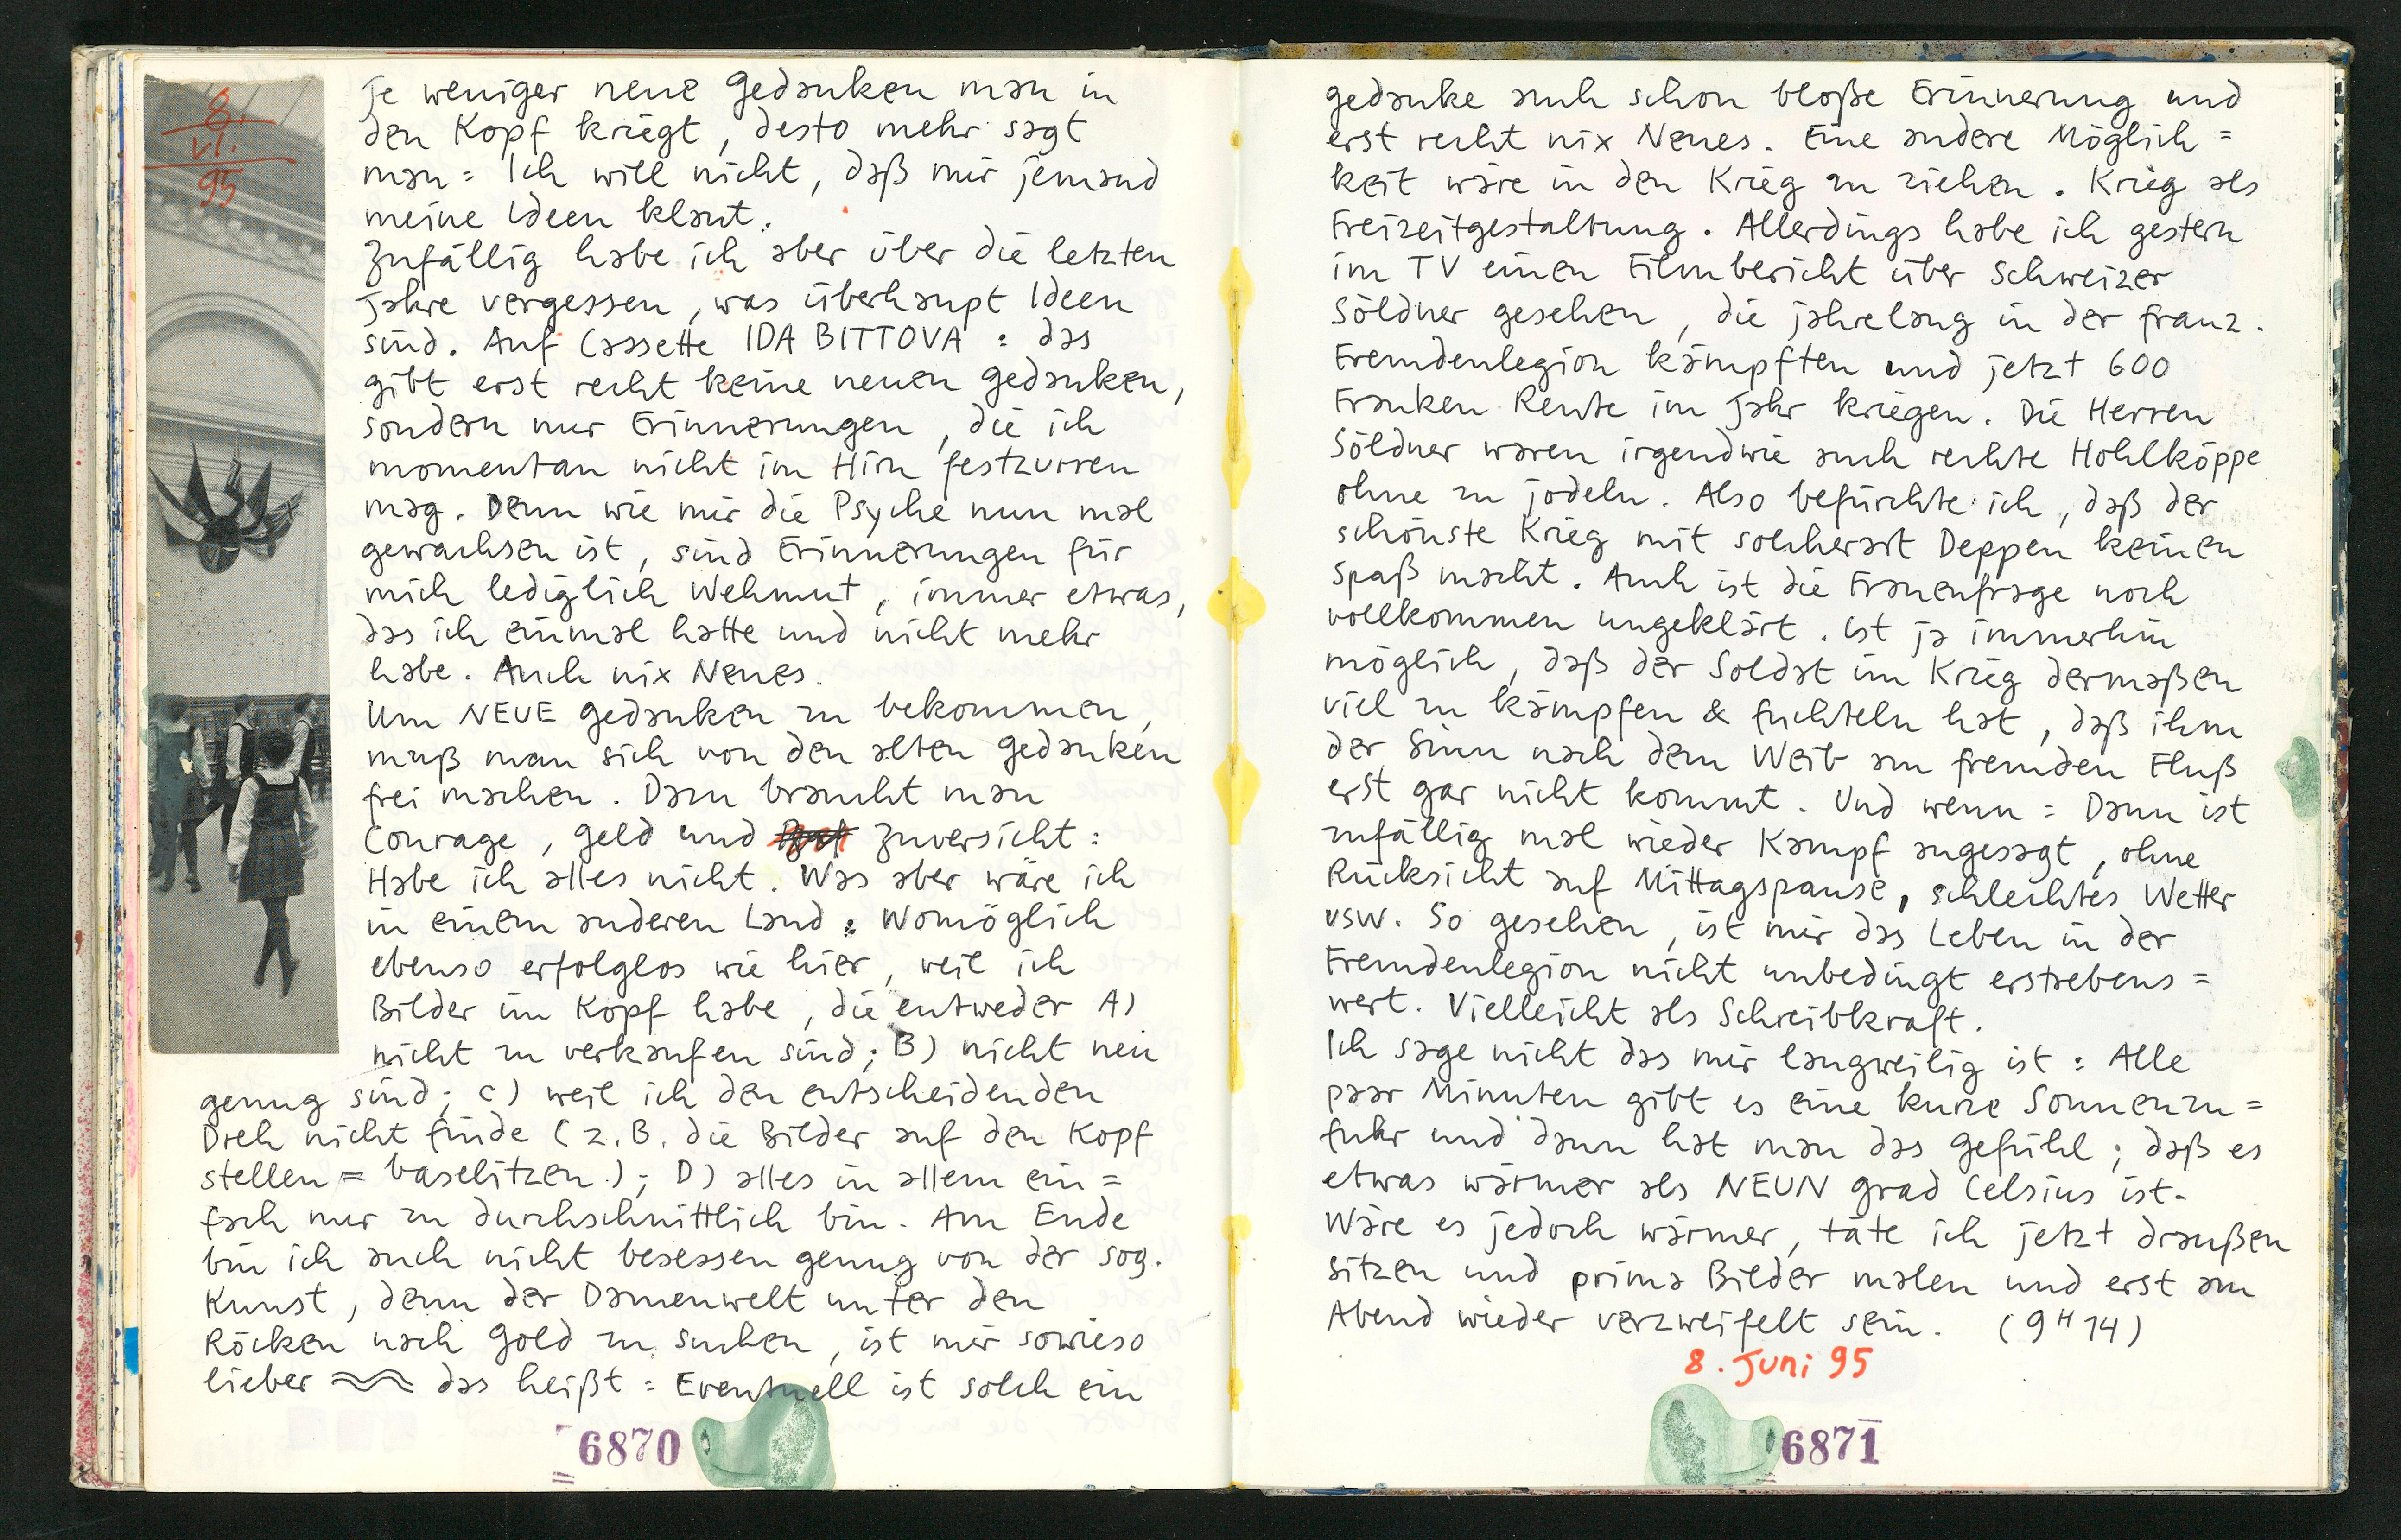 8.
VI.
95
Je weniger neue Gedanken man in
den Kopf kriegt, desto mehr sagt
man = Ich will nicht, daß mir jemand
meine Ideen klaut.
Zufällig habe ich aber über die letzten
Jahre vergessen, was überhaupt Ideen
sind. Auf Cassette IDA BITTOVA = das
gibt erst recht keine neuen Gedanken,
sondern nur Erinnerungen, die ich
momentan nicht im Hirn festzurren
mag. Denn wie mir die Psyche nun mal
gewachsen ist, sind Erinnerungen für
mich lediglich Wehmut, immer etwas,
das ich einmal hatte und nicht mehr
habe. Auch nix Neues.
Um NEUE Gedanken zu bekommen,
muß man sich von den alten Gedanken
frei machen. Dazu braucht man
Courage, Geld und Zuversicht =
Habe ich alles nicht. Was aber wäre ich
in einem anderen Land = Womöglich
ebenso erfolglos wie hier, weil ich
Bilder im Kopf habe, die entweder A)
nicht zu verkaufen sind; B) nicht neu
genug sind; C) weil ich den entscheidenden
Dreh nicht finde (z.B. die Bilder auf den Kopf
stellen = baselitzen.); D) alles in allem ein=
fach nur zu durchschnittlich bin. Am Ende
bin ich auch nicht besessen genug von der sog.
Kunst, denn der Damenwelt unter den
Röcken nach Gold zu suchen, ist mir sowieso
lieber ≈ das heißt = Eventuell ist solch ein
6870
gedanke auch schon bloße Erinnerung und
erst recht nix Neues. Eine andere Möglich=
keit wäre in den Krieg zu ziehen. Krieg als
Freizeitgestaltung. Allerdings habe ich gestern
im TV einen Filmbericht über Schweizer
Söldner gesehen, die jahrelang in der franz.
Fremdenlegion kämpften und jetzt 600
Franken Rente im Jahr kriegen. Die Herren
Söldner waren irgendwie auch rechte Hohlköppe
ohne zu jodeln. Also befürchte ich, daß der
schönste Krieg mit solcherart Deppen keinen
Spaß macht. Auch ist die Frauenfrage noch
vollkommen ungeklärt. Ist ja immerhin
möglich, daß der Soldat im Krieg dermaßen
viel zu kämpfen & fuchteln hat, daß ihm
der Sinn nach dem Weib am fremden Fluß
erst gar nicht kommt. Und wenn = Dann ist
zufällig mal wieder Kampf angesagt, ohne
Rücksicht auf Mittagspause, schlechtes Wetter
usw. So gesehen, ist mir das Leben in der
Fremdenlegion nicht unbedingt erstrebens=
wert. Vielleicht als Schreibkraft.
Ich sage nicht das mir langweilig ist = Alle
paar Minuten gibt es eine kurze Sonnenzu=
fuhr und dann hat man das Gefühl; daß es
etwas wärmer als NEUN Grad Celsius ist.
Wäre es jedoch wärmer, täte ich jetzt draußen
sitzen und prima Bilder malen und erst am
Abend wieder verzweifelt sein. (9 H 14)
8. Juni 95
6871